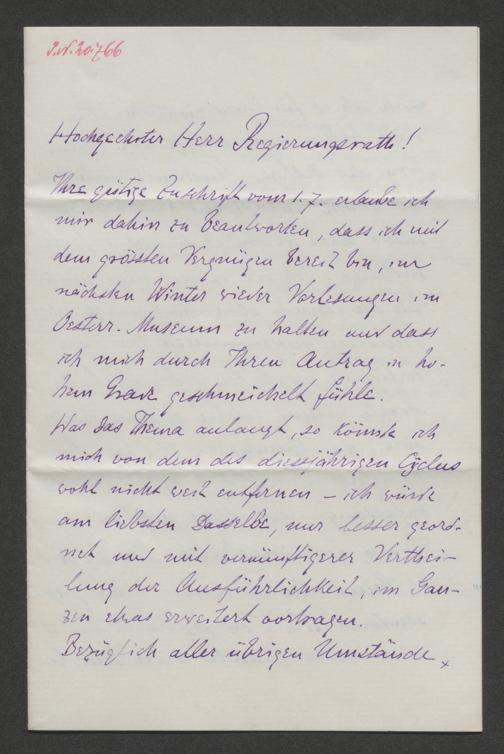 I.N. 20.766
Hochgeehrter Herr Regierungsrath!
Ihre gütige Zuschrift vom 1. 7. erlaube ich
mir dahin zu beantworten, dass ich mit
dem grössten Vergnügen bereit bin, im
nächsten Winter wieder Vorlesungen im
Oesterr. Museum zu halten und dass
ich mich durch Ihren Antrag in ho-
hem Grade geschmeichelt fühle.
Was das Thema anlangt, so könnte ich
mich von dem des diesjährigen Cyclus
wohl nicht weit entfernen – ich würde
am liebsten Dasselbe, nur besser geord-
net und mit vernünftigerer Verthei-
lung der Ausführlichkeit, im Gan-
zen etwas erweitert vortragen.
Bezüglich aller übrigen Umstände